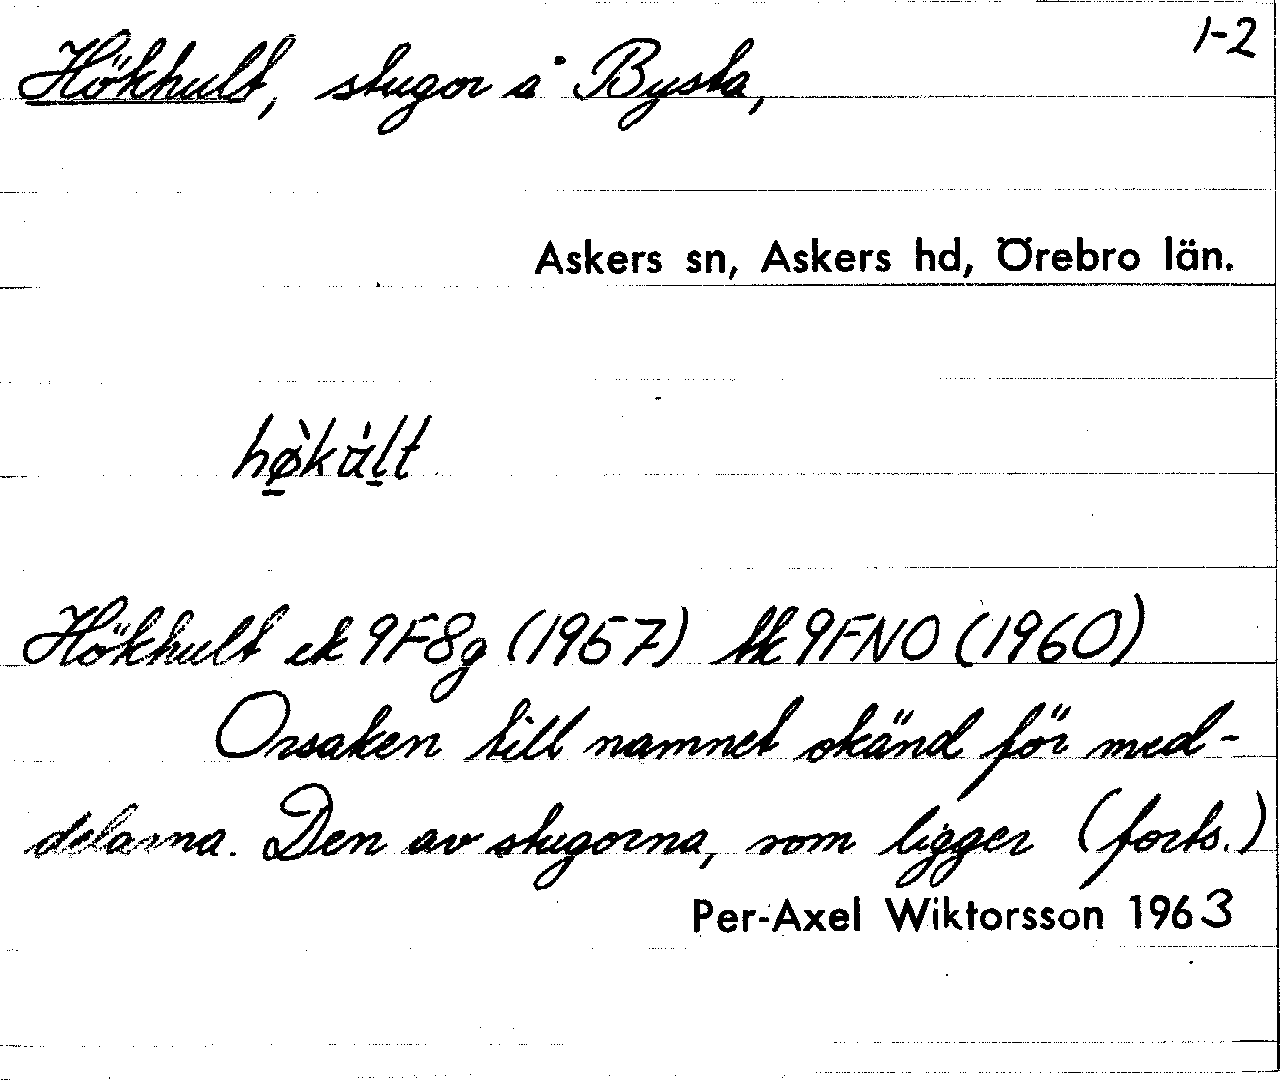 1-2
Hökhult, stugor å Bysta,
Askers sn, Askers hd, Örebro län.
hø̀kùlt
Hökhult ek 9F8g (1957) tk 9FNO (1960)
Orsaken till namnet okänd för med-
delarna. Den av stugorna, som ligger (forts.)
Per-Axel Wiktorsson 1963